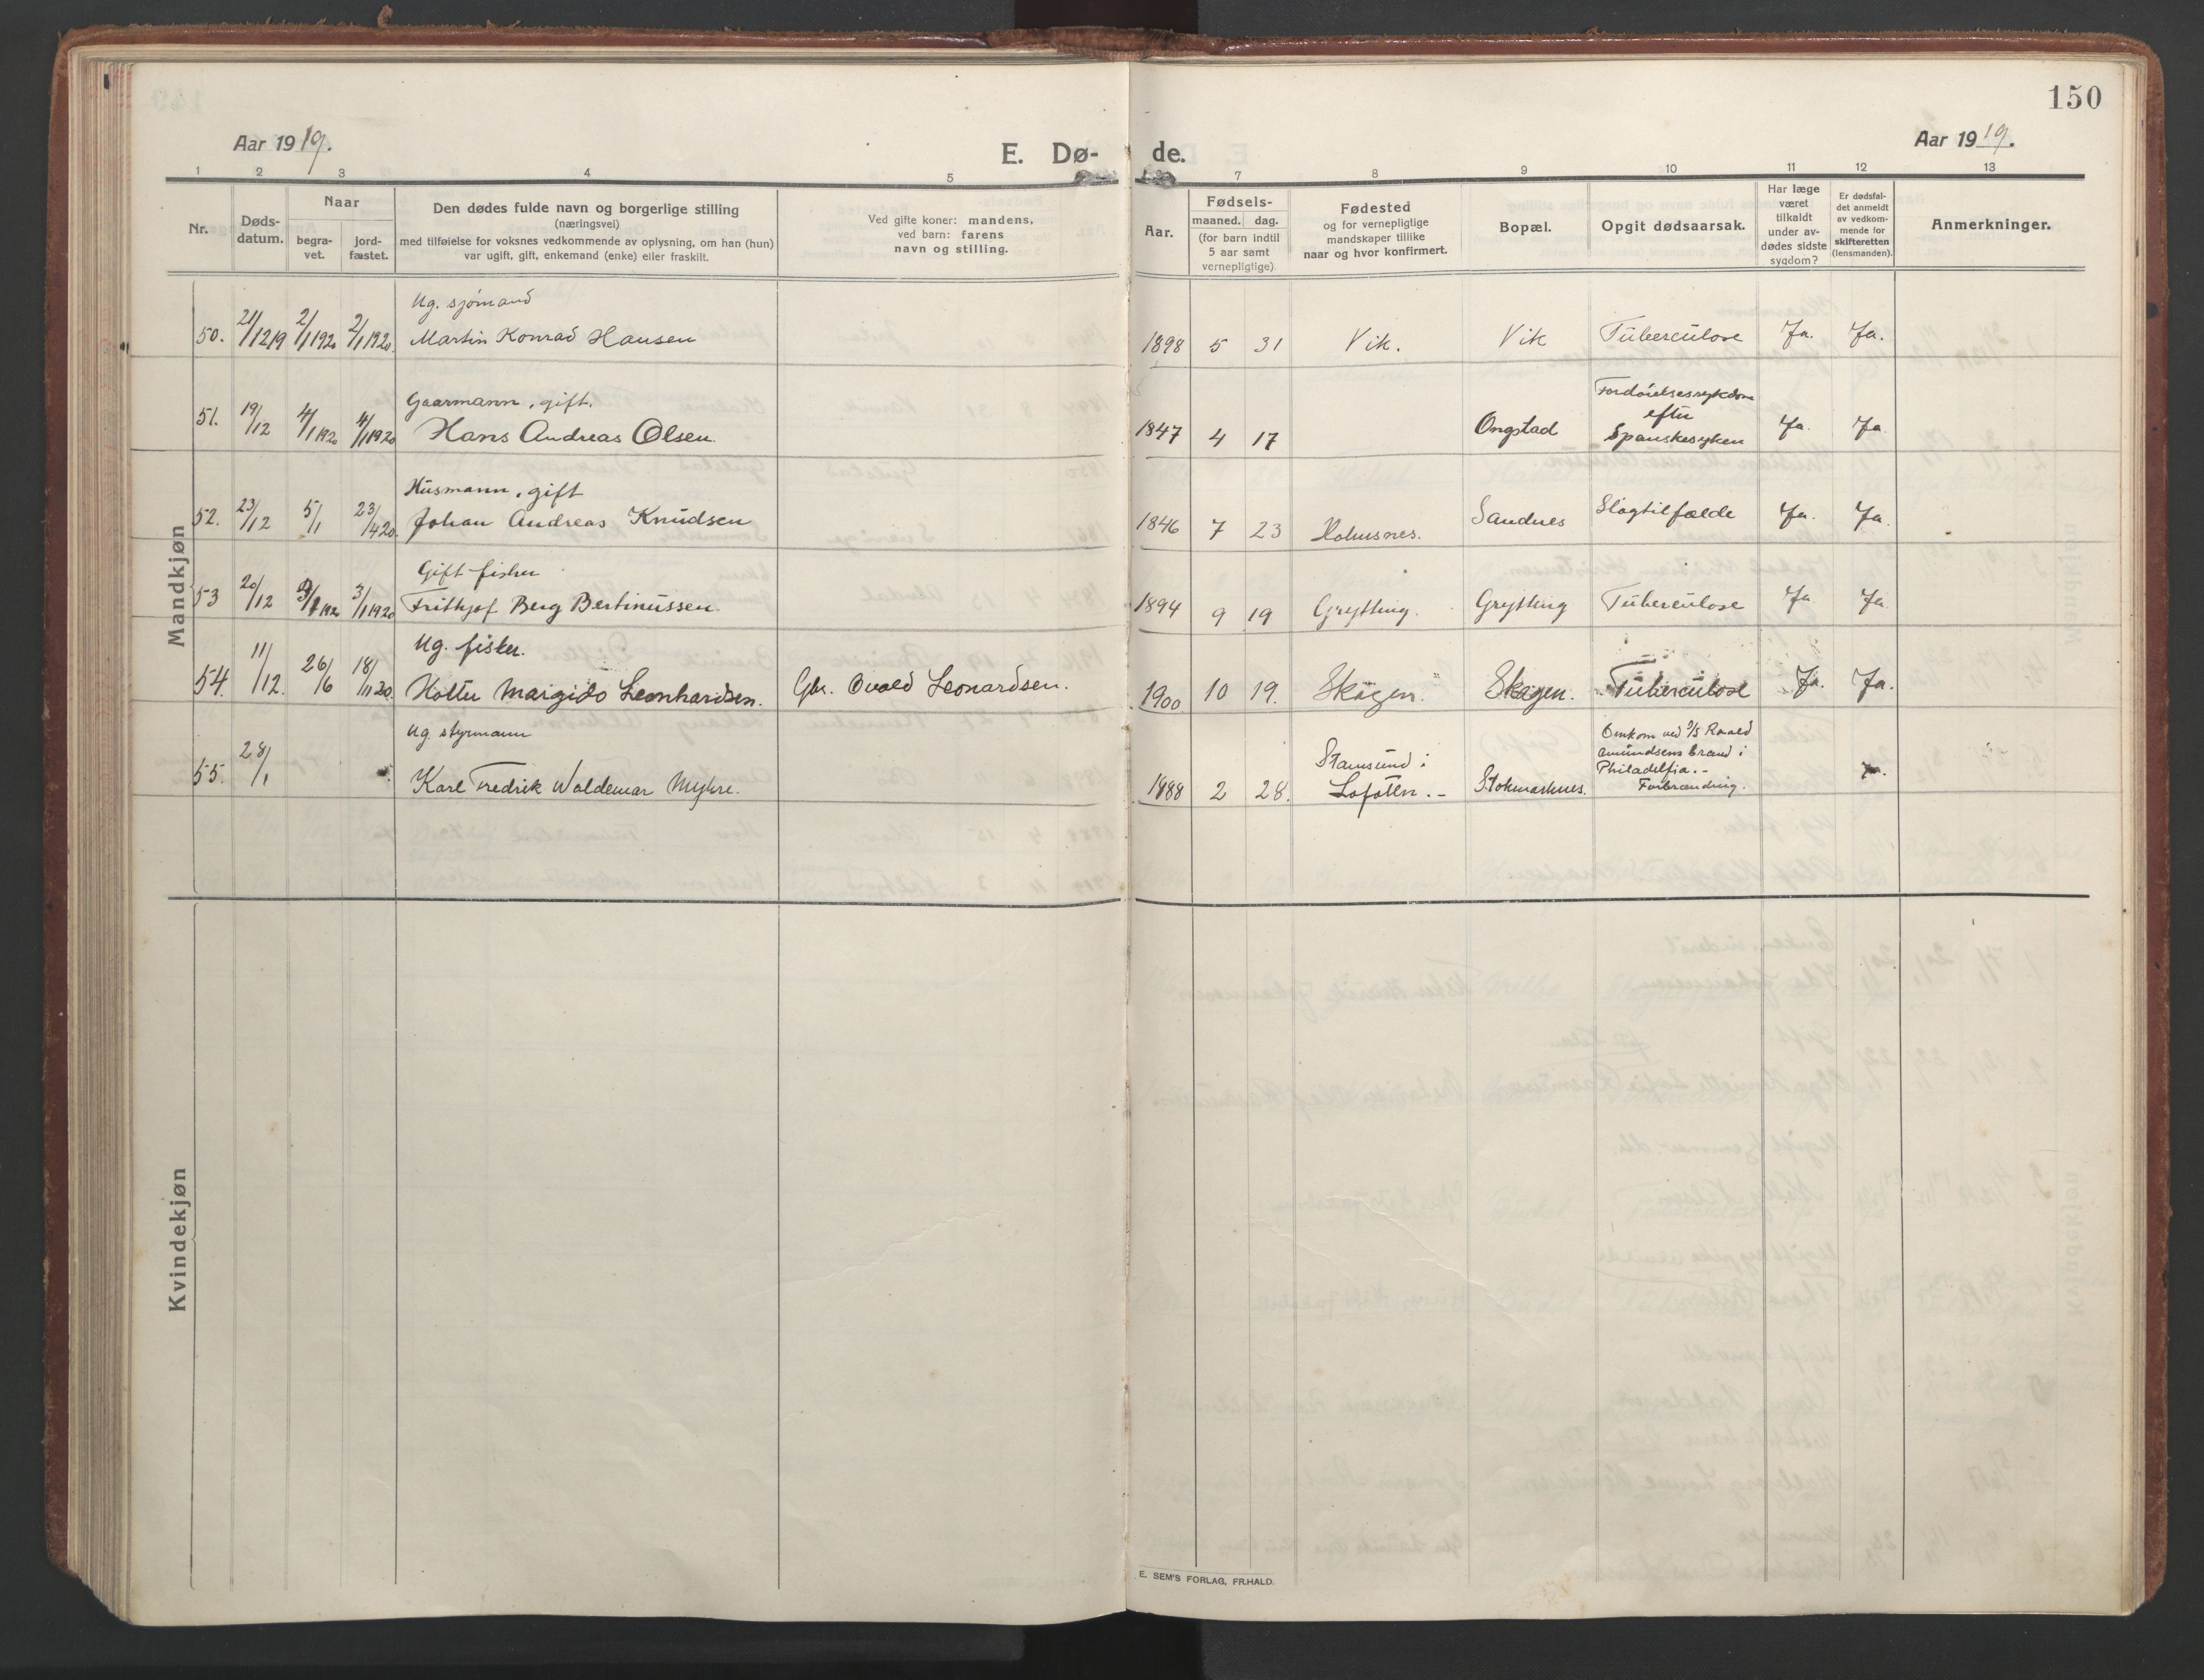 150
Aar 1919.
E. Dø-
de.
Aar 1919.
1 2 3 4 5 7 8 9 10 11 12 13
Nr.
Døds-
datum.
Naar
begra-
vet.
jord-
fæstet.
Den dødes fulde navn og borgerlige stilling
(næringsvei)
med tilføielse for voksnes vedkommende av oplysning, om han (hun)
var ugift, gift, enkemand (enke) eller fraskilt.
Ved gifte koner: mandens,
ved barn: farens
navn og stilling.
Aar.
Fødsels-
maaned. dag.
(for barn indtil
5 aar samt
vernepligtige)
Fødested
og for vernepligtige
mandskaper tillike
naar og hvor konfirmert.
Bopæl.
Opgit dødsaarsak.
Har læge
været
tilkaldt
under av-
dødes sidste
sygdom?
Er dødsfal-
det anmeldt
av vedkom-
mende for
skifteretten
(lensmanden).
Anmerkninger.
Mandkjøn
Ug. sjømand
50. 21/1219 2/1 1920 2/1 1920. Martin Konrad Hansen 1898 5 31 Vik. Vik Tuberculose Ja. Ja.
Gaarmann, gift.
51. 19/12 4/1 1920 4/1 1920 Hans Andreas Olsen. 1847 4 17 Ongstad Fordöielsessykdom
efter
Spanskesyken Ja. Ja.
Husmann, gift
52. 23/12 5/1 23/4 20. Johan Andreas Knudsen 1846 7 23 Holmsnes. Sandnes Slagtilfælde Ja. Ja.
Gift fisker
53 20/12 3/1 1920 3/1 1920 Frithjof Berg Bertinussen. 1894 9 19 Grytting. Grytting Tuberculose Ja Ja
Ug. fisker.
54. 11/12. 26/6 18/11 20. Margido Leonhardsen. Gbr. Leonardsen. 1900 10 19. Skagen. Skagen. Tuberculose Ja. Ja.
Ug. styrmann
55. 28/1 Karl Fredrik Woldemar Myhre. 1888 2 28. Stamsund i
Lofoten. - Stokmarknes. Omkom ved Roald
Amundsens brand i
Philadelfia. -
Forbrænding. Ja.
Kvindekjøn
E. SEM'S FORLAG, FR.HALD.